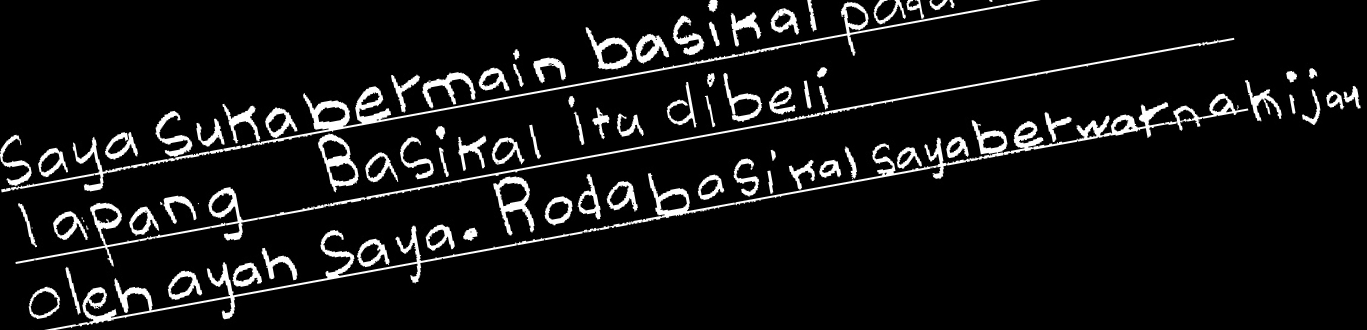 Saya suka bermain basikal pada
lapang Basikal itu dibeli
oleh ayah saya. Roda basikal saya berwarna hijau